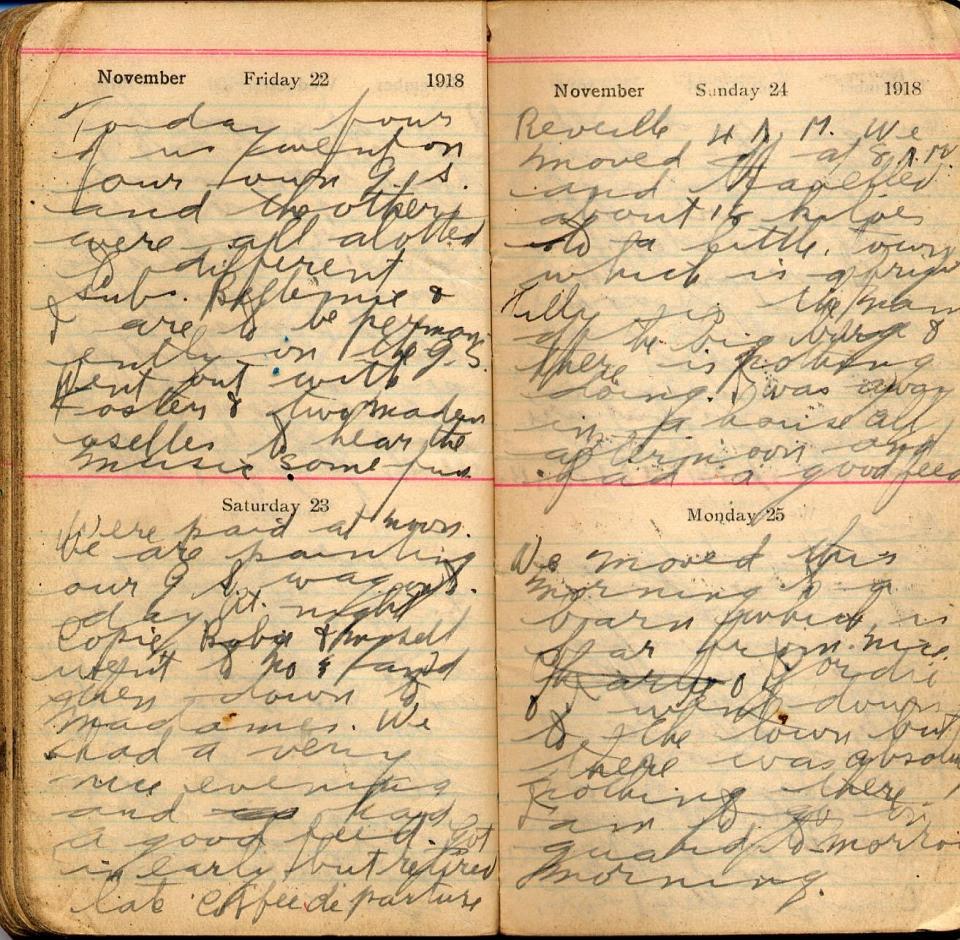 November Friday 22 1918
Today four
of us went on
four own G.S.
and the others
were all alotted
to different
subs. &
I are to be perman
ently on the G.S.
Went out with
Foster & two madem
oselles to hear the
music some fun
Saturday 23
Were paid at noon.
We are painting
our G S. wagons.
day At night
Copie, Robu & myself
went to no 4 and
then down to
madames. We
had a very
nice evening
and had
a good feed. Got
in early but retired
late Coffee departure
November Sunday 24 1918
Reveille 4 A. M. We
moved off at 8 A.M.
and travelled
about 18 kiloes
to a little town
which is
Tilly is the name
of the big burg &
there is nothing
doing. I was away
in a house all
afternoon and
had a good feed
Monday 25
We moved this
morning to a
barn which is
far from nice.
Jordie
& I went down
to the town but
there was absolu
nothing there. I
am to go on
guard to morro
morning.